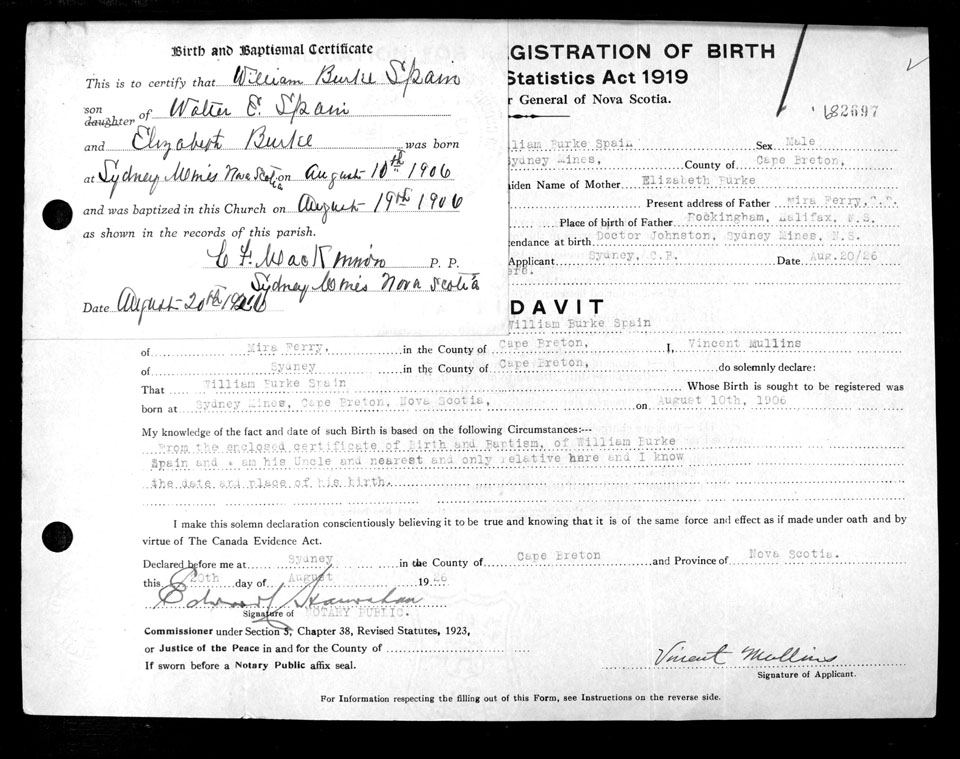 Birth and Baptismal Certificate
This is to certify that William Burke Spain
son
daughter of Walter E. Spain
and Elizabeth Burke was born
at Sydney Mines Nova Scotia on August 10th 1906
and was baptized in this Church on August 19th 1906
as shown in the records of this parish.
C F MacKinnon P. P.
Sydney Mines Nova Scotia
Date August 20th 1926
GISTRATION OF BIRTH
Statistics Act 1919
r General of Nova Scotia.
82697
lliam Burke Spain Sex Male
Sydney Mines, County of Cape Breton,
iden Name of Mother Elizabeth Burke
Present address of Father Mira Ferry, C.B.
Place of birth of Father Rockingham, Halifax, N.S.
endance at birth Doctor Johnston, Sydney Mines, N.S.
Applicant Sydney, C.B. Date Aug.20/26
ers.
DAVIT
William Burke Spain
of Mira Ferry, in the County of Cape Breton, I, Vincent Mullins
of Sydney in the County of Cape Breton, do solemnly declare:
That William Burke Spain Whose Birth is sought to be registered was
born at Sydney Mines, Cape Breton, Nova Scotia, on August 10th, 1906
My knowledge of the fact and date of such Birth is based on the following Circumstances:--
From the enclosed certificate of Birth and Baptism, of William Burke
Spain and am his Uncle and nearest and only relative here and I know
the date and place of his birth.
I make this solemn declaration conscientiously believing it to be true and knowing that it is of the same force and effect as if made under oath and by
virtue of The Canada Evidence Act.
Declared before me at Sydney in the County of Cape Breton and Province of Nova Scotia.
this 20th day of August 1926
Signature of NOTARY PUBLIC.
Commissioner under Section 3, Chapter 38, Revised Statutes, 1923,
or Justice of the Peace in and for the County of
If sworn before a Notary Public affix seal.
Vincent Mullins
Signature of Applicant.
For Information respecting the filling out of this Form, see Instructions on the reverse side.